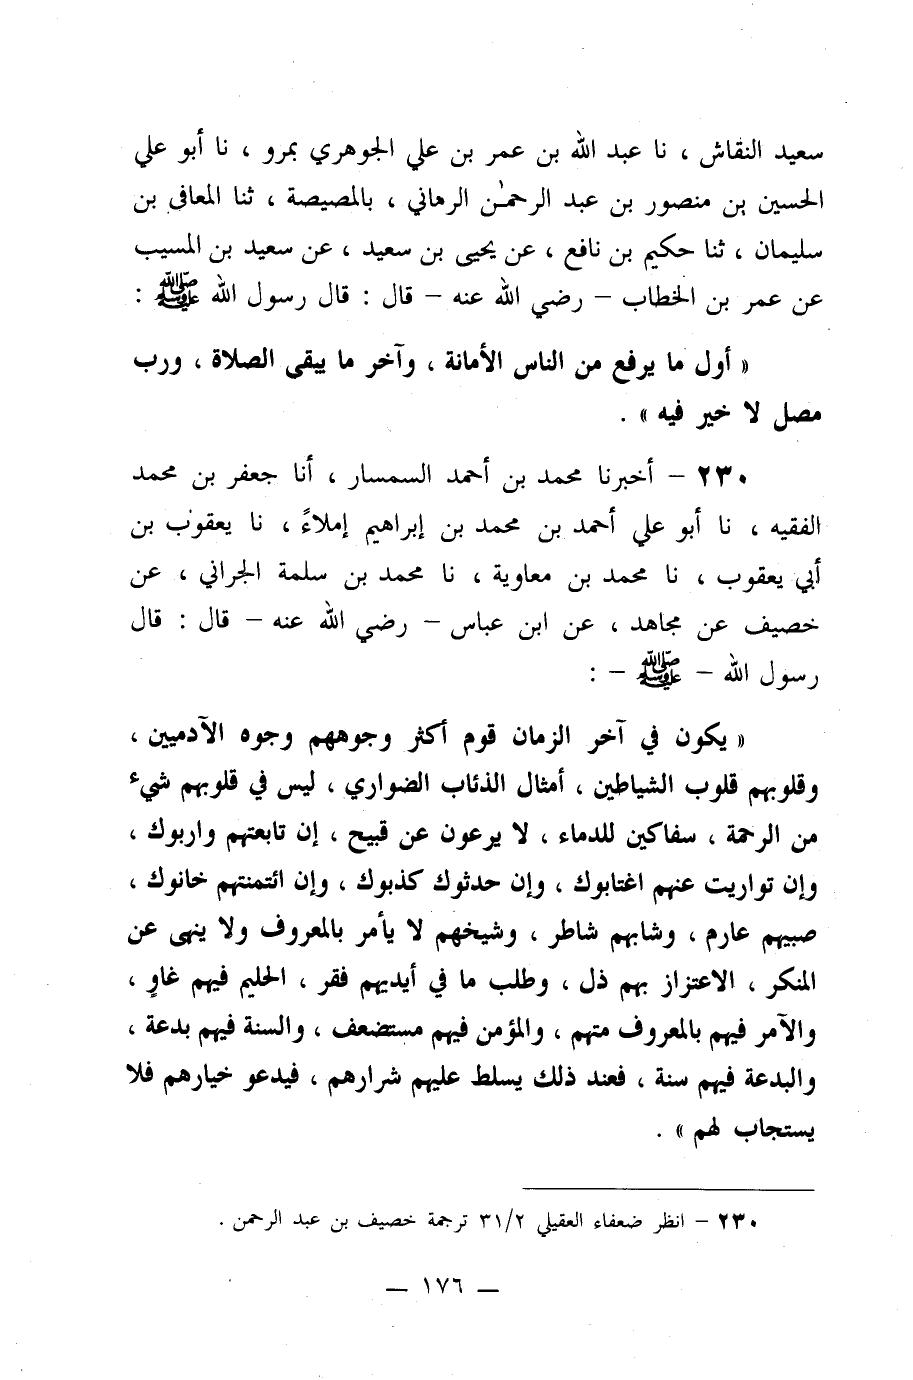 سعيد النقاش ، نا عبد الله بن عمر بن علي الجوهري بمرو ، نا أبو علي
الحسين بن منصور بن عبد الرحمٰن الرماني ، بالمصيصة ، ثنا المعافى بن
سليمان ، ثنا حكيم بن نافع ، عن يحيى بن سعيد ، عن سعيد بن المسيب
عن عمر بن الخطاب – رضي الله عنه – قال : قال رسول الله ﷺ :
« أول ما يرفع من الناس الأمانة ، وآخر ما يبقى الصلاة ، ورب
مصل لا خير فيه » .
٢٣٠ – أخبرنا محمد بن أحمد السمسار ، أنا جعفر بن محمد
الفقيه ، نا أبو علي أحمد بن محمد بن إبراهيم إملاءً ، نا يعقوب بن
أبي يعقوب ، نا محمد بن معاوية ، نا محمد بن سلمة الحراني ، عن
خصيف عن مجاهد ، عن ابن عباس – رضي الله عنه – قال : قال
رسول الله – ﷺ – :
« يكون في آخر الزمان قوم أكثر وجوههم وجوه الآدميين ،
وقلوبهم قلوب الشياطين ، أمثال الذئاب الضواري ، ليس في قلوبهم شيء
من الرحمة ، سفاكين للدماء ، لا يرعون عن قبيح ، إن تابعتهم واربوك ،
وإن تواريت عنهم اغتابوك ، وإن حدثوك كذبوك ، وإن ائتمنتهم خانوك ،
صبيهم عارم ، وشابهم شاطر ، وشيخهم لا يأمر بالمعروف ولا ينهى عن
المنكر ، الاعتزاز بهم ذل ، وطلب ما في أيديهم فقر ، الحليم فيهم غاوٍ ،
والآمر فيهم بالمعروف متهم ، والمؤمن فيهم مستضعف ، والسنة فيهم بدعة ،
والبدعة فيهم سنة ، فعند ذلك يسلط عليهم شرارهم ، فيدعو خيارهم فلا
يستجاب لهم » .
٢٣٠ – انظر ضعفاء العقيلي ٣١/٢ ترجمة خصيف بن عبد الرحمن .
— ١٧٦ —